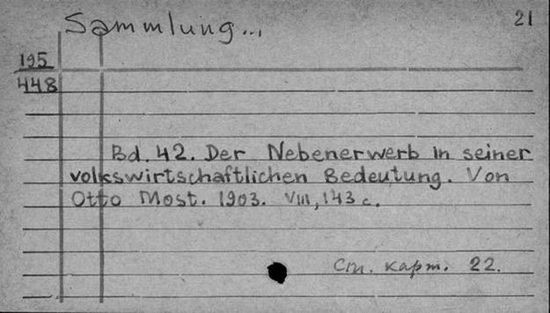 21
Sammlung...
195
448
Bd. 42. Der Nebenerwerb in seiner
volkswirtschaftlichen Bedeutung. Von
Otto Most. 1903. VIII, 143 с.
См. карт. 22.